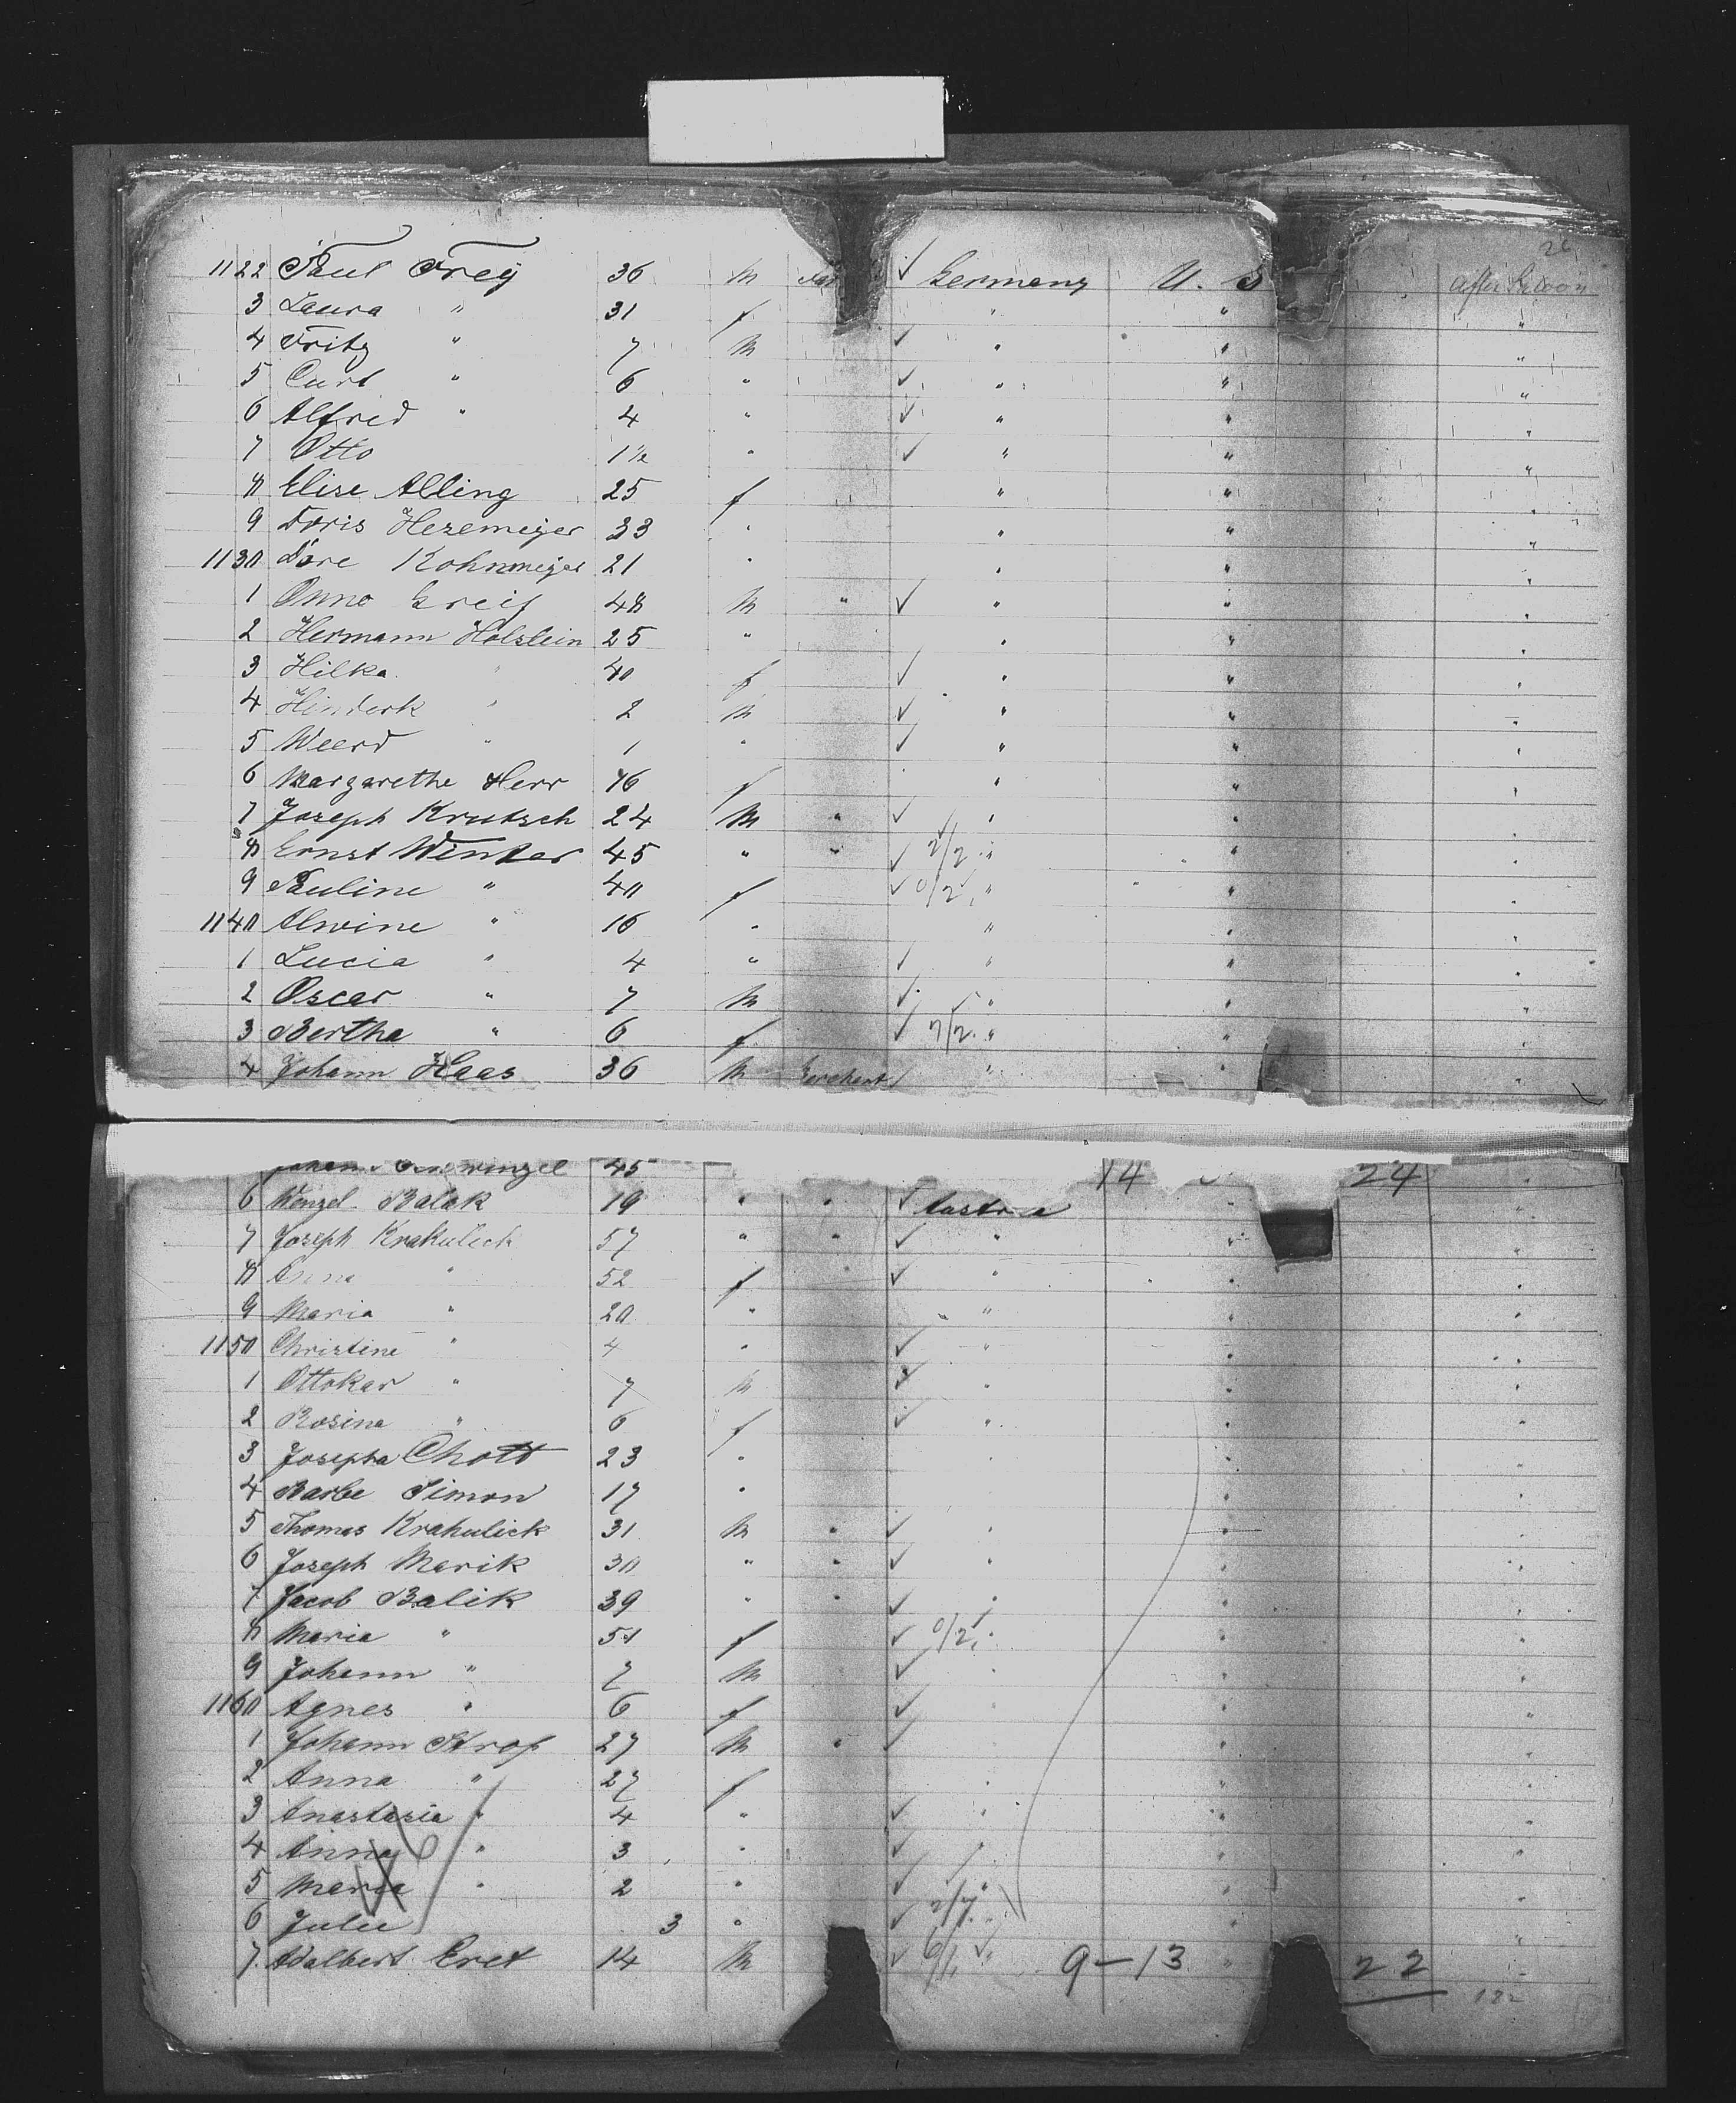 26
1122 Paul Frey 36 M ✓ Germany U. S after Saloon
3 Laura " 31 f " " "
4 Fritz " 7 M ✓ " " "
5 Curt " 6 " ✓ " " "
6 Alfred " 4 " ✓ " " "
7 Otto 1 1/2 " ✓ " " "
8 Elise Alling 25 f " " "
9 Doris Hezemeijer 33 " " " "
1130 Dore Kohnmeijer 21 " " " "
1 Onno Greif 48 M " ✓ " " "
2 Hermann Holstein 25 " " " "
3 Hilka " 40 f ✓ " " "
4 Hinderk " 2 M ✓ " " "
5 Weerd " 1 " ✓ " " "
6 Margarethe Herr 76 f " " "
7 Joseph Krutsch 24 M " ✓ " " "
8 Ernst Winter 45 " " ✓ 2/2 " " "
9 Pauline " 40 f ✓ 0/2 " " "
1140 Alwine " 16 " " " "
1 Lucia " 4 " ✓ " " "
2 Oscar " 7 M ✓ " " "
3 Bertha " 6 f ✓ 2/2 " " "
4 Johann Haas 36 M ✓ " " "
45 14 24
6 Wenzel Balak 19 " " ✓ Austria " "
7 Joseph Krakulick 57 " " ✓ " " "
8 Anna " 52 f " ✓ " " "
9 Maria " 20 " " " "
1150 Christine " 4 " ✓ " " "
1 Ottokar " 7 M ✓ " " "
2 Rosina " 6 f ✓ " " "
3 Josepha Chott 23 " " "
4 Barbe Simon 17 " " "
5 Thomas Krakulick 31 M " ✓ " " "
6 Joseph Marik 30 " " ✓ " " "
7 Jacob Balik 39 " " ✓ " " "
8 Maria " f ✓ 0/2 " " "
9 Johann " 7 M ✓ " " "
1160 Agnes " 6 f ✓ " " "
1 Johann Strop 27 M " ✓ " "
2 Anna " 27 f " " "
3 Anastasia " 4 " ✓ " " "
4 Anna " 3 " ✓ " " "
5 Maria " 2 " ✓ " " "
6 Julie 3 " ✓ " " "
7 Adalbert Cret 14 M ✓ " 9-13 " 22
122